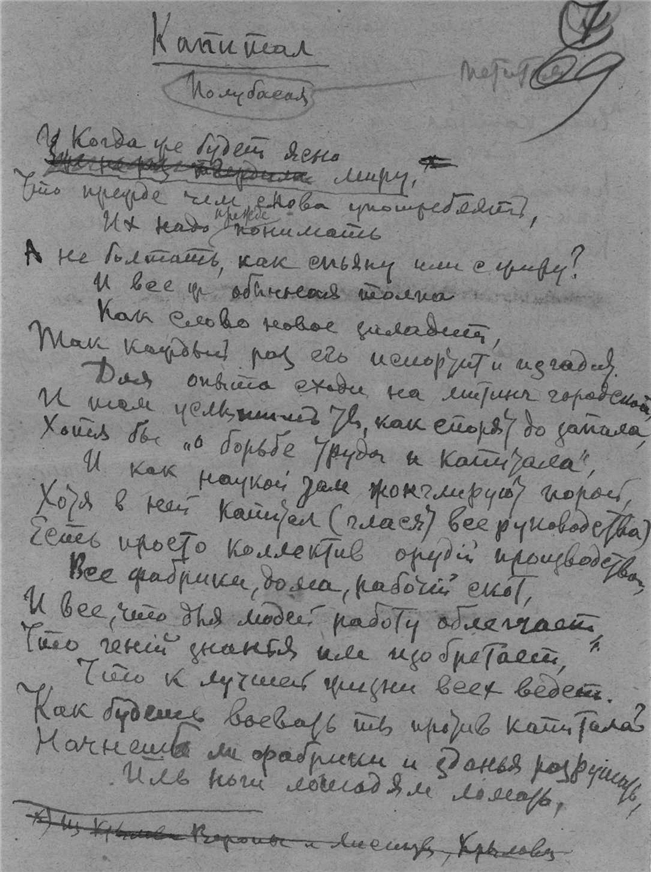 Капитал
Полубасая
петитъ
Когда же будет ясно
миру,
Что прежде чем слова употреблять,
Их надо прежде понимать
А не болтать, как спьяну или с жиру?
И все ж обычная толпа
Как слово новое
Так каждый раз его испортит и изгадит.
Для опыта сходи на митинг городской,
И там услышишь ты, как спорят до запала,
Хотя бы „о борьбе труда и капитала“,
И как наукой там жонглируют порой,
Хотя в ней капитал (гласят все руководства)
Есть просто коллектив орудий производства,
Все фабрики, дома, рабочий скот,
И все, что для людей работу облегчает,
Что гений знанья им изобретает,
Что к лучшей жизни всех ведет.
Как будешь воевать ты против капитала?
Начнешь ли фабрики и зданья разрушать,
Иль ноги лошадям ломать,
х) Из Крылова Вороны и Лисицы, Крылова